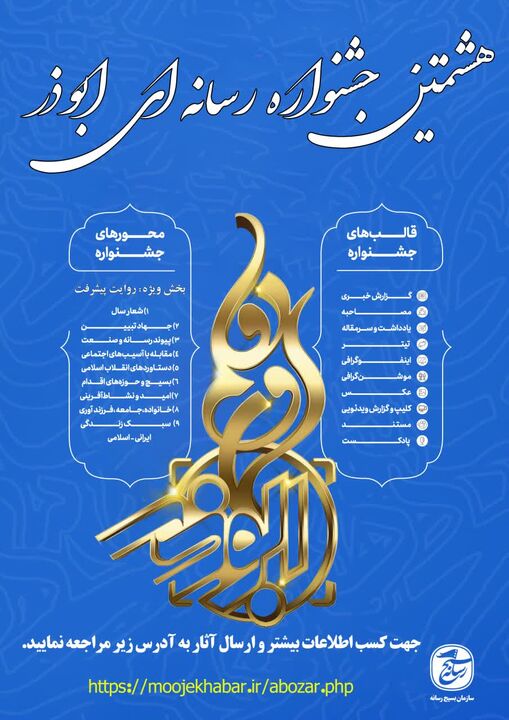 هشتمین جشنواره رسانه ای ابوذر
قالب‌های
جشنواره
گزارش خبری
مصاحبه
یادداشت و سرمقاله
تیتر
اینفوگرافی
موشن‌گرافی
عکس
کلیپ و گزارش ویدئویی
مستند
پادکست
محورهای
جشنواره
بخش ویژه: روایت پیشرفت
۱) شعار سال
۲) جهاد تبیین
۳) پیوند رسانه و صنعت
۴) مقابله با آسیب‌های اجتماعی
۵) دستاوردهای انقلاب اسلامی
۶) بسیج و حوزه‌های اقدام
۷) امید و نشاط‌آفرینی
۸) خانواده، جامعه، فرزندآوری
۹) سبک زندگی
ایرانی-اسلامی
ابوذر
جهت کسب اطلاعات بیشتر و ارسال آثار به آدرس زیر مراجعه نمایید.
https://moojekhabar.ir/abozar.php
سازمان بسیج رسانه